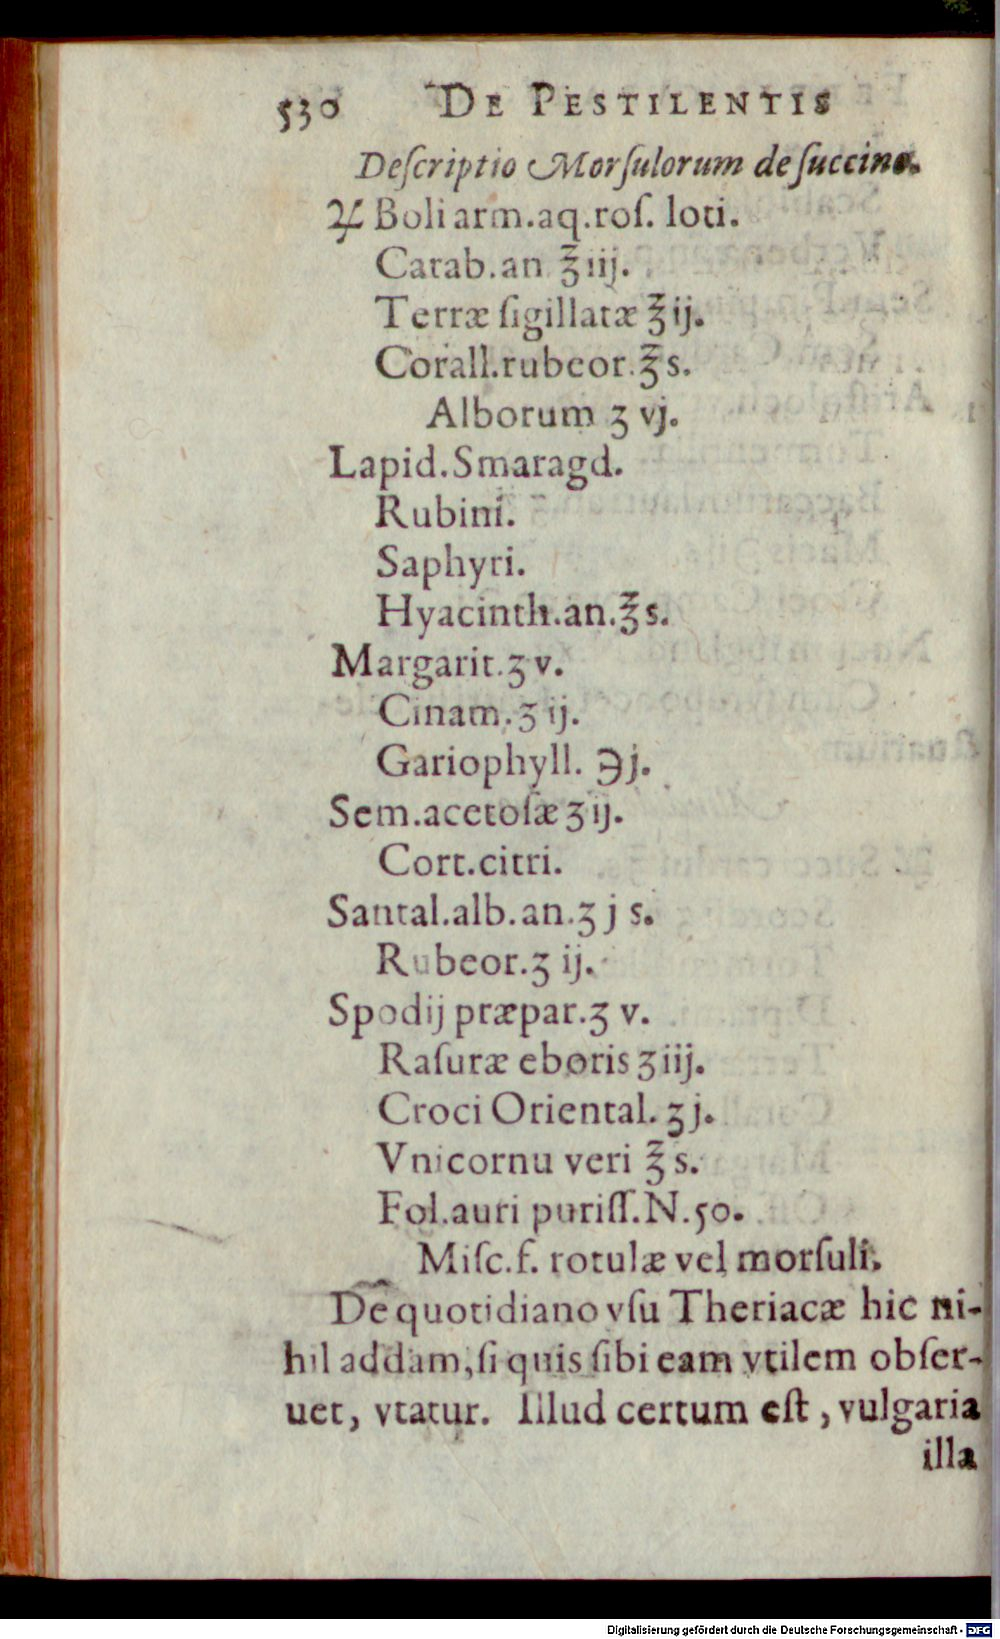 530 DE PESTILENTIS
Deſcriptio Morſulorum de ſuccino.
℞ Boli arm. aq. roſ. loti.
Carab. an ℥ iij.
Terræ ſigillatæ ℥ ij.
Corall. rubeor. ℥ s.
Alborum ʒ vj.
Lapid. Smaragd.
Rubini.
Saphyri.
Hyacinth. an. ℥ s.
Margarit. ʒ v.
Cinam. ʒ ij.
Gariophyll. ℈ j.
Sem. acetoſæ ʒ ij.
Cort. citri.
Santal. alb. an. ʒ j s.
Rubeor. ʒ ij.
Spodij præpar. ʒ v.
Raſuræ eboris ʒ iij.
Croci Oriental. ʒ j.
Vnicornu veri ℥ s.
Fol. auri puriſſ. N. 50.
Miſc. f. rotulæ vel morſuli.
De quotidiano vſu Theriacæ hic ni-
hil addam, ſi quis ſibi eam vtilem obſer-
uet, vtatur. Illud certum eſt, vulgaria
illa
Digitalisierung gefördert durch die Deutsche Forschungsgemeinschaft - DFG